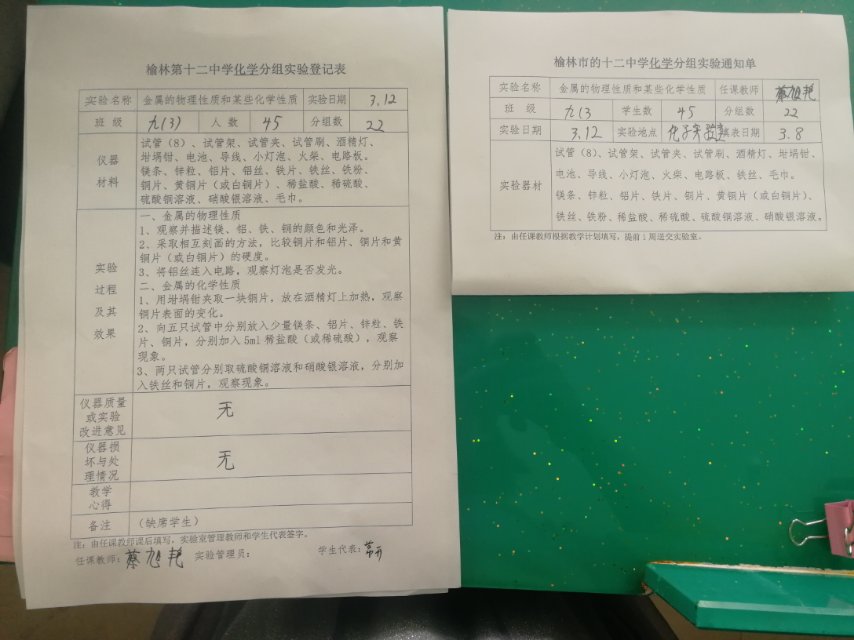 榆林第十二中学化学分组实验登记表
实验名称 金属的物理性质和某些化学性质 实验日期 3.12
班 级 九(3) 人 数 45 分组数 22
仪器
材料
试管(8)、试管架、试管夹、试管刷、酒精灯、
坩埚钳、电池、导线、小灯泡、火柴、电路板。
镁条、锌粒、铝片、铝丝、铁片、铁丝、铁粉、
铜片、黄铜片(或白铜片)、稀盐酸、稀硫酸、
硫酸铜溶液、硝酸银溶液、毛巾。
实验
过程
及其
效果
一、金属的物理性质
1、观察并描述镁、铝、铁、铜的颜色和光泽。
2、采取相互刻画的方法,比较铜片和铝片、铜片和黄
铜片(或白铜片)的硬度。
3、将铝丝连入电路,观察灯泡是否发光。
二、金属的化学性质
1、用坩埚钳夹取一块铜片,放在酒精灯上加热,观察
铜片表面的变化。
2、向五只试管中分别放入少量镁条、铝片、锌粒、铁
片、铜片,分别加入5ml稀盐酸(或稀硫酸),观察
现象。
3、两只试管分别取硫酸铜溶液和硝酸银溶液,分别加
入铁丝和铜片,观察现象。
仪器质量
或实验
改进意见
无
仪器损
坏与处
理情况
无
教学
心得
备注 (缺席学生)
注:由任课教师课后填写,实验室管理教师和学生代表签字。
任课教师:蔡旭艳 实验管理员: 学生代表:
榆林市的十二中学化学分组实验通知单
实验名称 金属的物理性质和某些化学性质 任课教师 蔡旭艳
班 级 九(3) 学生数 45 分组数 22
实验日期 3.12 实验地点 化学实验室 填表日期 3.8
实验器材
试管(8)、试管架、试管夹、试管刷、酒精灯、坩埚钳、
电池、导线、小灯泡、火柴、电路板、铁丝、毛巾。
镁条、锌粒、铝片、铁片、铜片、黄铜片(或白铜片)、
铁丝、铁粉、稀盐酸、稀硫酸、硫酸铜溶液、硝酸银溶液。
注:由任课教师根据教学计划填写,提前1周送交实验室。